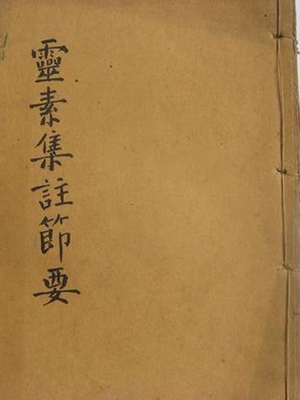 靈素集註節要